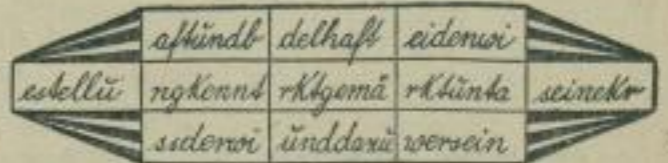 aftŭndb delhaft eiderwi
estellŭ ngkennt rktgemä rktŭnta seinekr
ssderwi ŭnddazŭ wersein